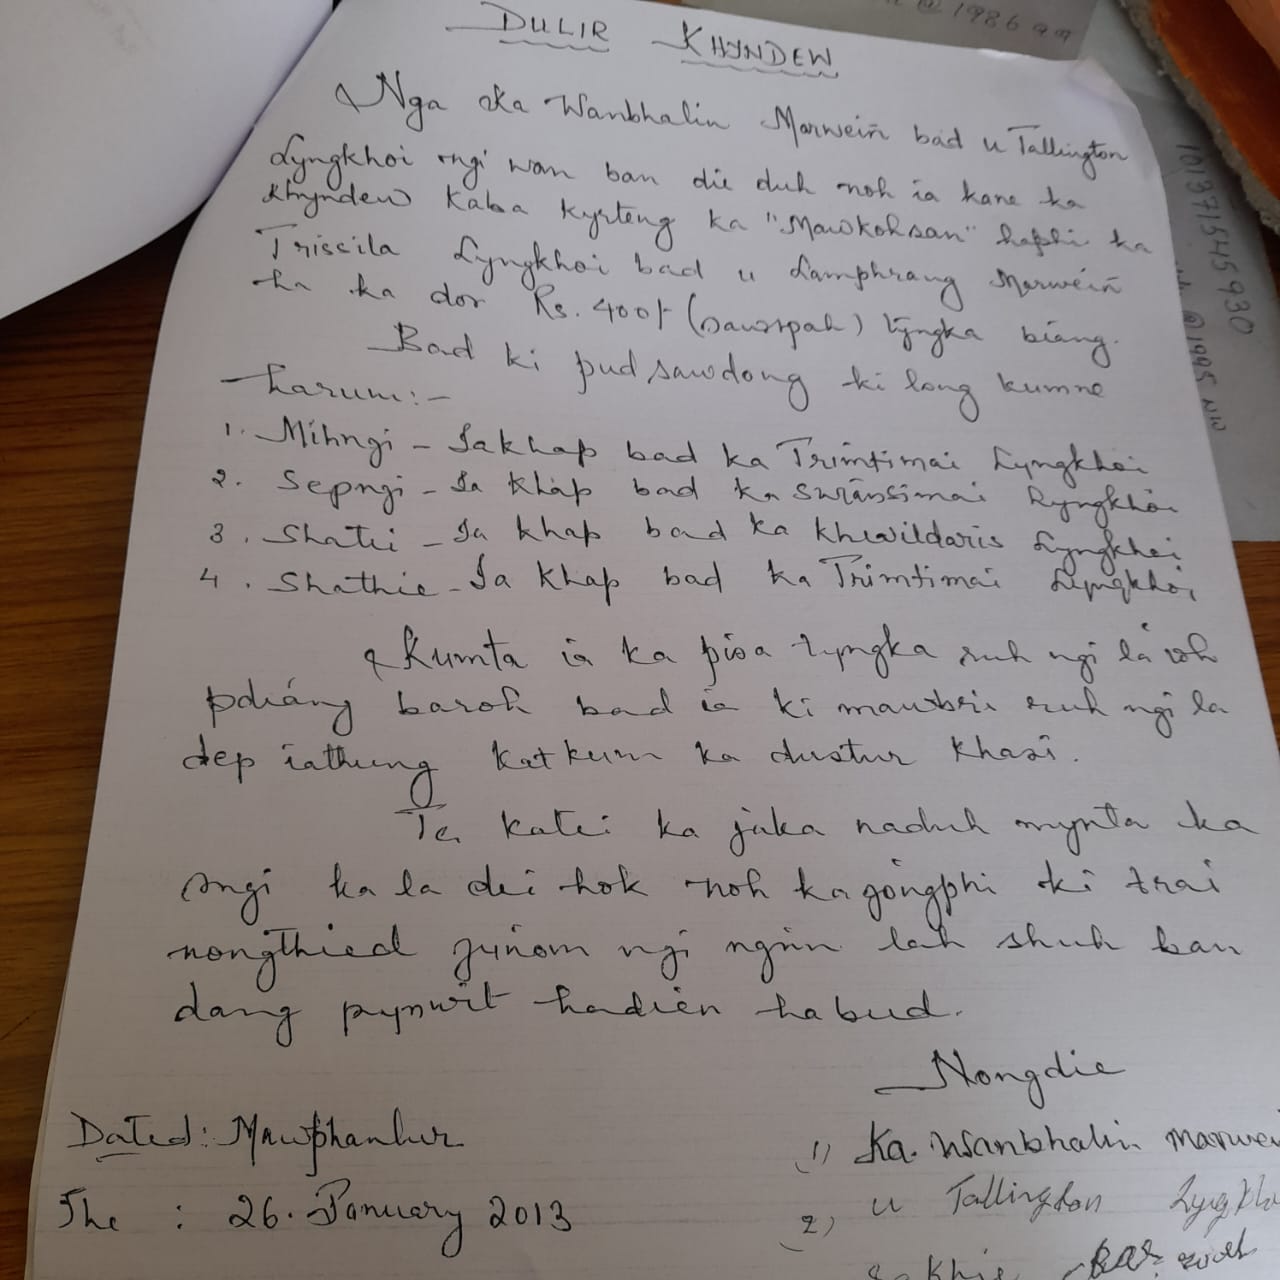 @ 1986
DULIR KHYNDEW
Nga Ka Wanbhalin Marweiñ bad u Tallington
Lyngkhoi ngi wan ban die duh noh ia kane ka
Khyndew kaba kyrteng ka "Mawkohsan" haphi ka
Triscila Lyngkhoi bad u Lamphrang Marweiñ
ha ka dor Rs. 400/- (sawspah) tyngka biang.
Bad ki pud sawdong ki long kumne
harum:-
1. Mihngi - Iakhap bad ka Trimtimai Lyngkhoi
2. Sepngi - Ia khap bad ka Lyngkhoi
3. Shatei - Ia khap bad ka Khwildaris Lyngkhoi
4. Shathie - Ia Khap bad ka Trimtimai Lyngkhoi
Kumta ia ka pisa tyngka ruh ngi la ioh
pdiáng baroh bad ia ki mawbri ruh ngi la
dep iathung katkum ka dustur khasi.
Te katei ka jaka naduh mynta ka
sngi ka la dei hok noh ka jongphi ki trai
nongthied ngi ngiin lah shuh ban
dang pynwit hadien habud.
Nongdie
Dated: Mawphanlur
The : 26. January 2013
1) Ka. Wanbhalin Marwei
2) u Tallington
10137154545930
@ 1995 NW